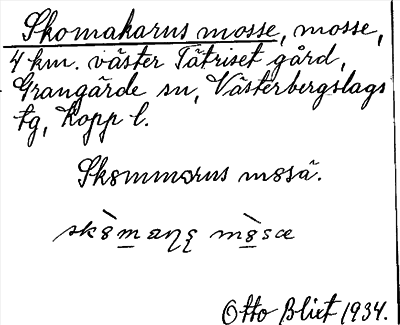 Skomakarus mosse, mosse,
4 km. väster Tätriset gård,
Grangärde sn, Västerbergslags
tg, Kopp l.
Skommarus mosä.
Otto Blixt 1934.